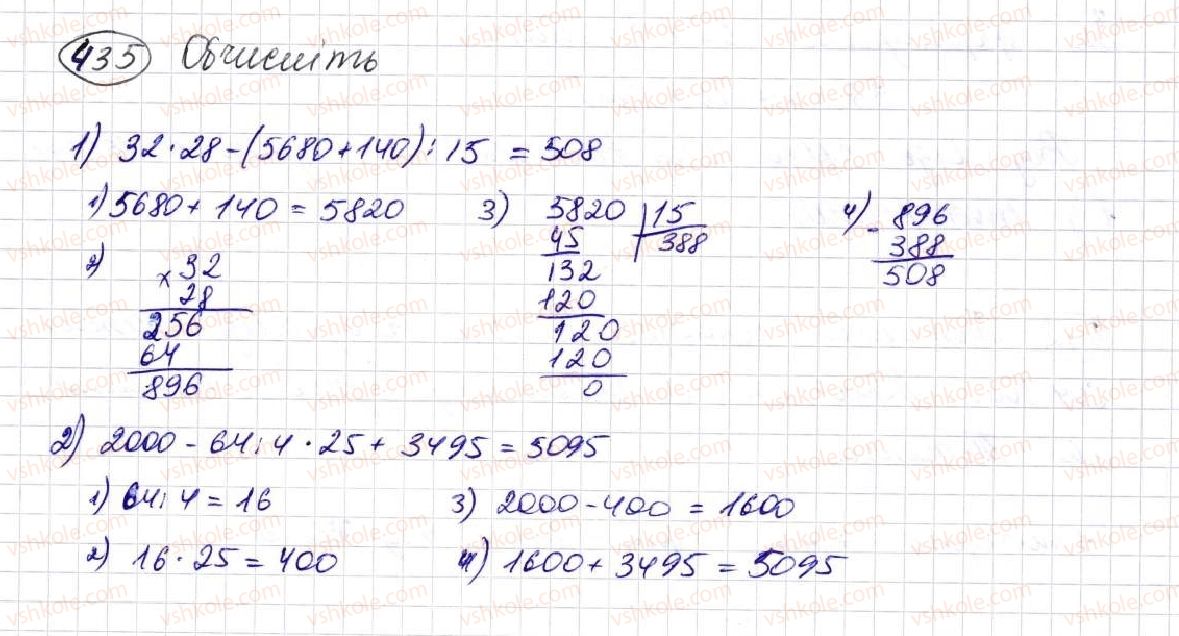 435 Обчисліть
1) 32·28-(5680+140):15 = 508
1) 5680+140 = 5820
2) × 32
28
256
64
896
3) 5820 | 15
45 388
132
120
120
120
0
4) - 896
388
508
2) 2000-64:4·25+3495=5095
1) 64:4=16
2) 16·25=400
3) 2000-400=1600
4) 1600+3495=5095
vshkole.com